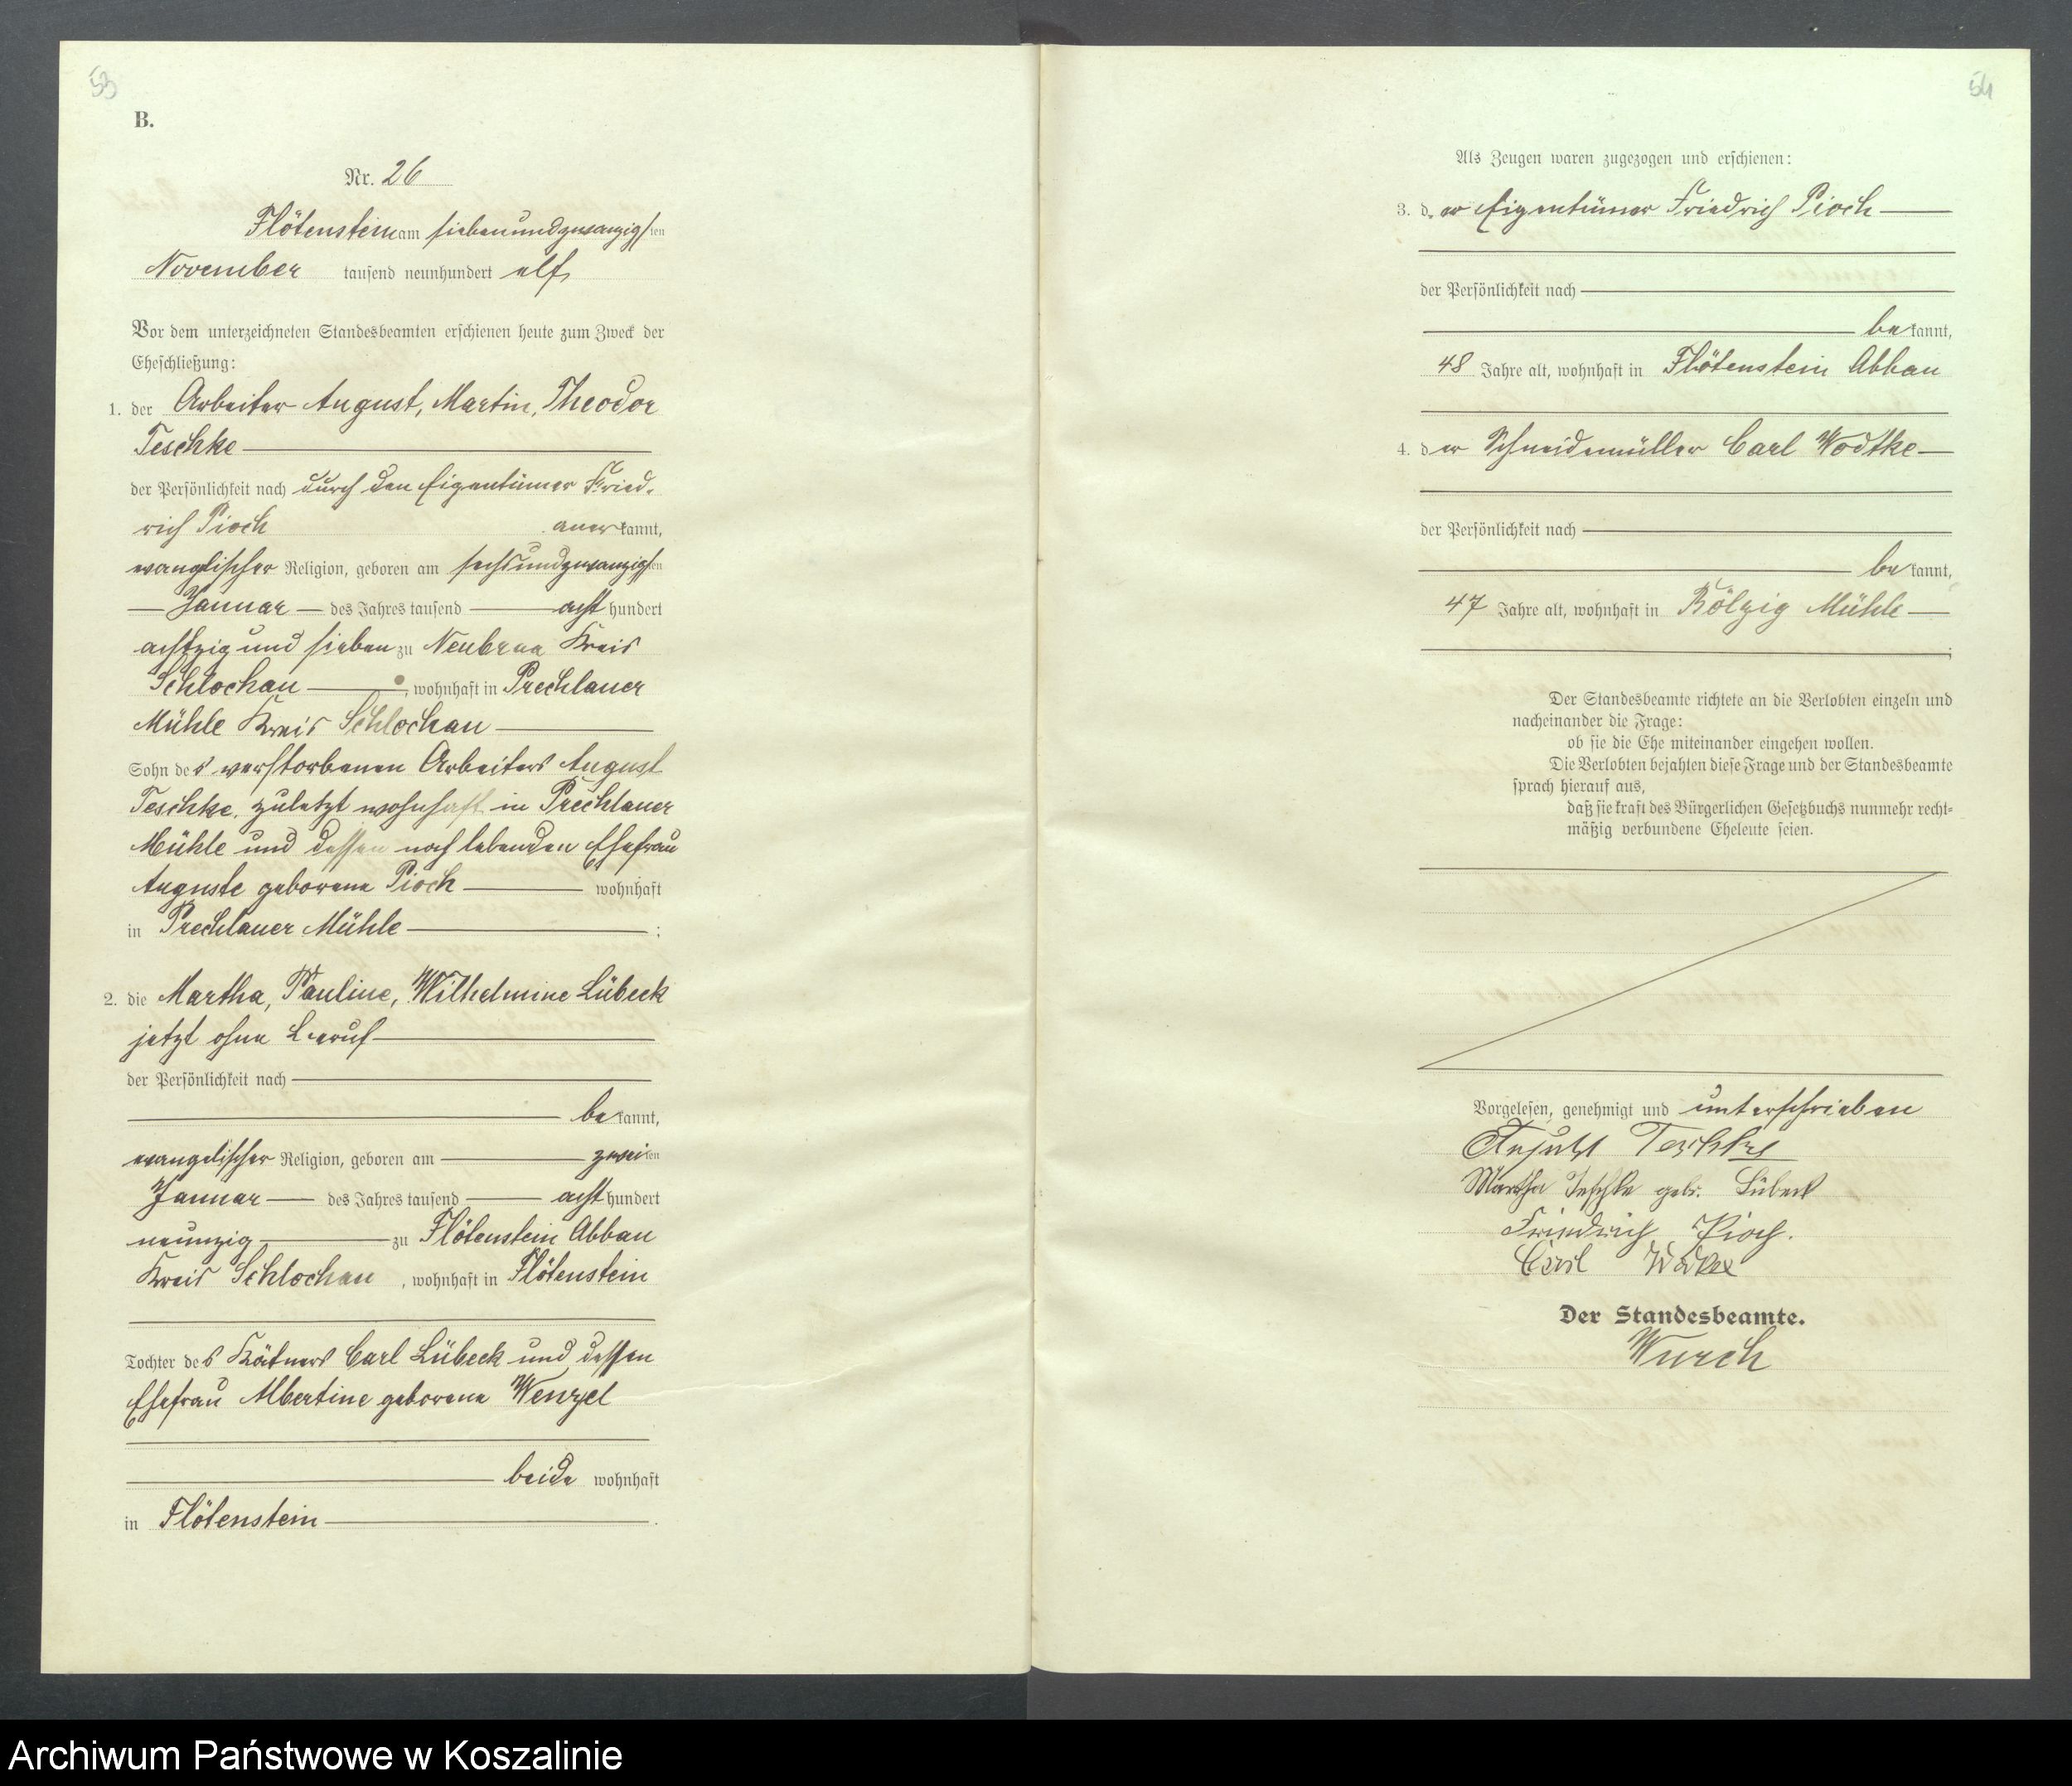 53
B.
Nr. 26
Flötenstein am siebenundzwanzigsten
November tausend neunhundert elf
Vor dem unterzeichneten Standesbeamten erschienen heute zum Zweck der
Eheschließung:
1. der Arbeiter August, Martin, Theodor
Teschke
der Persönlichkeit nach durch den Eigentümer Fried-
rich Pioch anerkannt,
evangelischer Religion, geboren am sechsundzwanzigsten
Januar des Jahres tausend acht hundert
achtzig und sieben zu Neubraa Kreis
Schlochau, wohnhaft in Prechlauer
Mühle Kreis Schlochau
Sohn des verstorbenen Arbeiters August
Teschke, zuletzt wohnhaft in Prechlauer
Mühle und dessen noch lebenden Ehefrau
Auguste geborene Pioch wohnhaft
in Prechlauer Mühle ;
2. die Martha, Pauline, Wilhelmine Lübeck
jetzt ohne Beruf
der Persönlichkeit nach
bekannt,
evangelischer Religion, geboren am zweiten
Januar des Jahres tausend acht hundert
neunzig zu Flötenstein Abbau
Kreis Schlochau, wohnhaft in Flötenstein
Tochter des Kätners Carl Lübeck und dessen
Ehefrau Albertine geborene Wenzel
beide wohnhaft
in Flötenstein .
54
Als Zeugen waren zugezogen und erschienen:
3. der Eigentümer Friedrich Pioch
der Persönlichkeit nach
bekannt,
48 Jahre alt, wohnhaft in Flötenstein Abbau
4. der Schneidemüller Carl Wodtke
der Persönlichkeit nach
bekannt,
47 Jahre alt, wohnhaft in Bölzig Mühle
;
Der Standesbeamte richtete an die Verlobten einzeln und
nacheinander die Frage:
ob sie die Ehe miteinander eingehen wollen.
Die Verlobten bejahten diese Frage und der Standesbeamte
sprach hierauf aus,
daß sie kraft des Bürgerlichen Gesetzbuchs nunmehr recht-
mäßig verbundene Eheleute seien.
Vorgelesen, genehmigt und unterschrieben
August Teschke
Martha Teschke geb. Lübeck
Friedrich Pioch.
Carl Wodtke
Der Standesbeamte.
Wurch
Archiwum Państwowe w Koszalinie